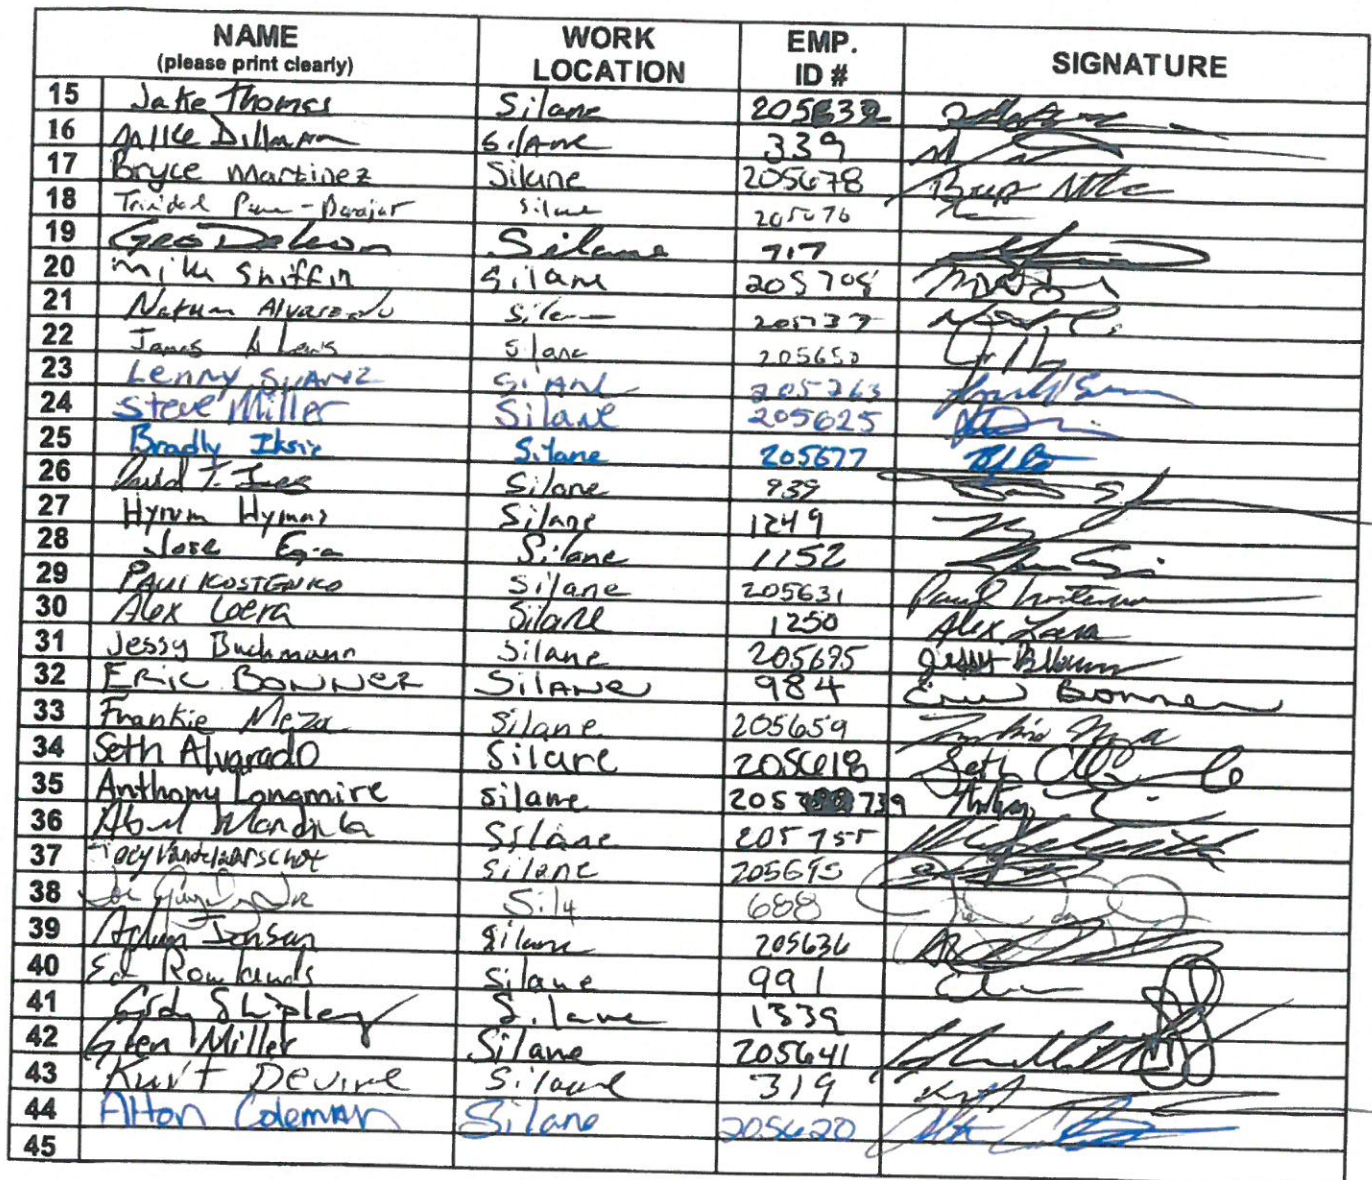 NAME WORK LOCATION EMP. ID # SIGNATURE
(please print clearly)
15 Jake Thomas Silane 205632
16 Mike Dillman Silane 339
17 Bryce Martinez Silane 205678
18 Trinidad Silane 205676
19 Geo Deleon Silane 717
20 Mike Sniffin Silane 205705
21 Alvarado Silane 205737
22 James A Lewis Silane 205650
23 Lenny SUAREZ SILANE 205263
24 Steve Miller Silane 205625
25 Bradly Silane 205677
26 David T. Ives Silane 939
27 Hyrum Hymas Silane 1249
28 Jose Silane 1152
29 PAUL KOSTENKO Silane 205631
30 Alex Loera Silane 1250 Alex Loera
31 Jessy Buchmann Silane 205695
32 ERIC BONNER SILANE 984 Eric Bonner
33 Frankie Meza Silane 205659 Frankie Meza
34 Seth Alvarado Silane 205618 Seth
35 Anthony Longmire Silane 205 739
36 Silane 205755
37 Silane 205695
38 Joe Sila 688
39 Adam Jensen Silane 205636
40 Ed Rowlands Silane 991
41 Shipley Silane 1339
42 Glen Miller Silane 205641
43 Kurt Devine Silane 319
44 Alton Coleman Silane 205620
45